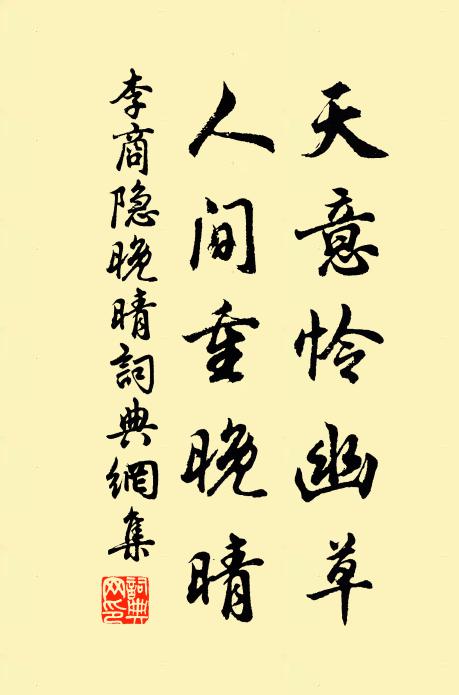 天意怜幽草
人间重晚晴
李商隐晚晴詞典網集
詞典网印